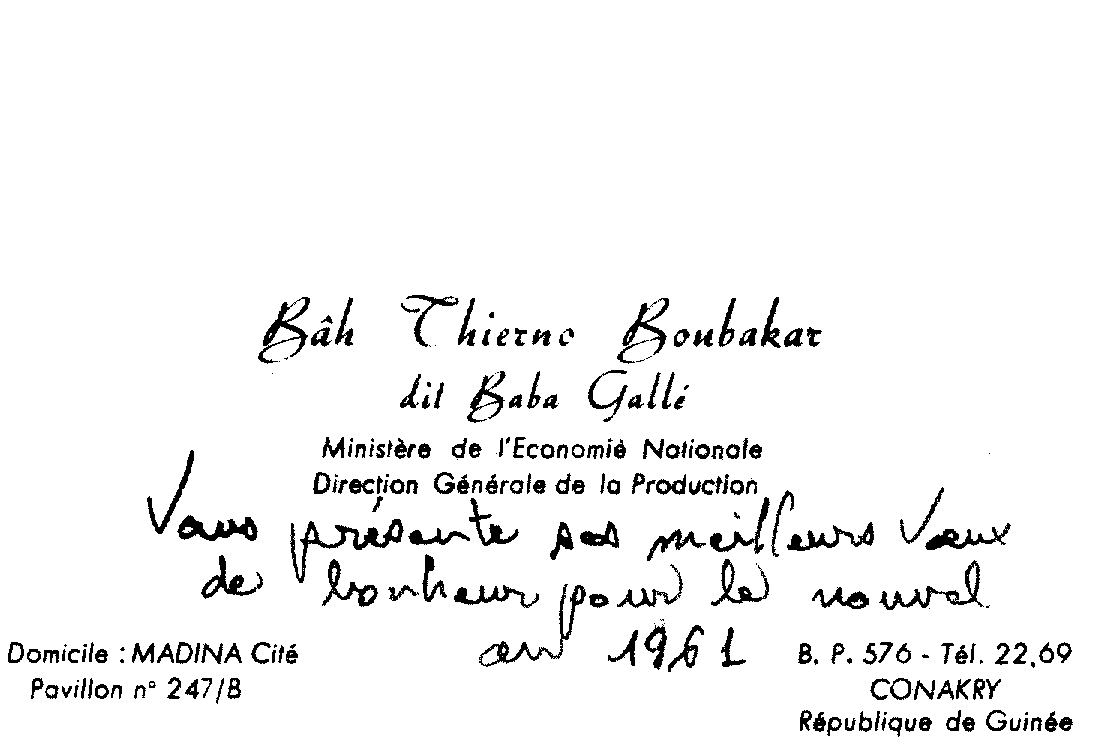 Bâh Thierno Boubakar
dit Baba Gallé
Ministère de l'Economie Nationale
Direction Générale de la Production
Vous présente ses meilleurs Vœux
de bonheur pour le nouvel
an 1961
Domicile : MADINA Cité
Pavillon n° 247/B
B. P. 576 - Tél. 22.69
CONAKRY
République de Guinée